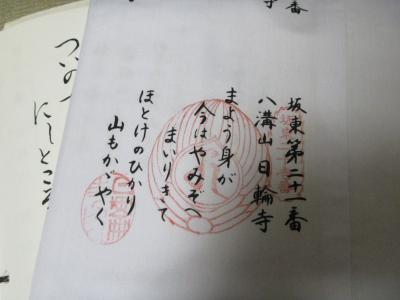 番
坂東第二十一番
八溝山 日輪寺
まよう身が
今はやみぞへ
まいりきて
ほとけのひかり
山もかゞやく
ついの
にしところ